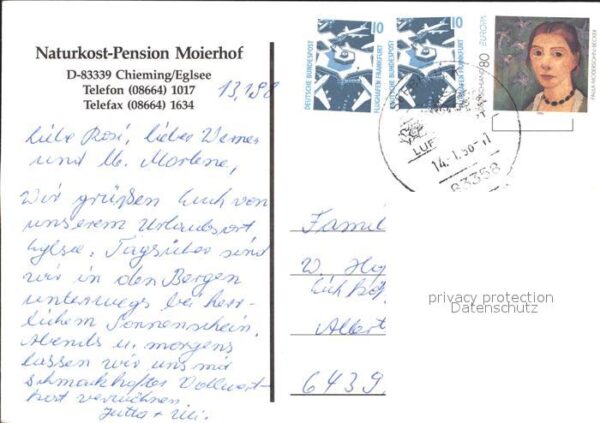 Naturkost-Pension Moierhof
D-83339 Chieming/Eglsee
Telefon (08664) 1017
Telefax (08664) 1634
13.1.98
Liebe Rosi, lieber Werner
und Marlene,
Wir grüßen Euch von
unserem Urlaubsort
Eglsee. Tagsüber sind
wir in den Bergen
unterwegs bei herr-
lichem Sonnenschein.
Abends u. morgens
lassen wir uns mit
schmackhafter Vollwert-
kost verwöhnen
Jutta + Uli.
10
DEUTSCHE BUNDESPOST
FLUGHAFEN FRANKFURT
10
DEUTSCHE BUNDESPOST
FLUGHAFEN FRANKFURT
80
EUROPA
PAULA MODERSOHN-BECKER
LUF
83358
Famil
W.
Albert
6439
privacy protection
Datenschutz